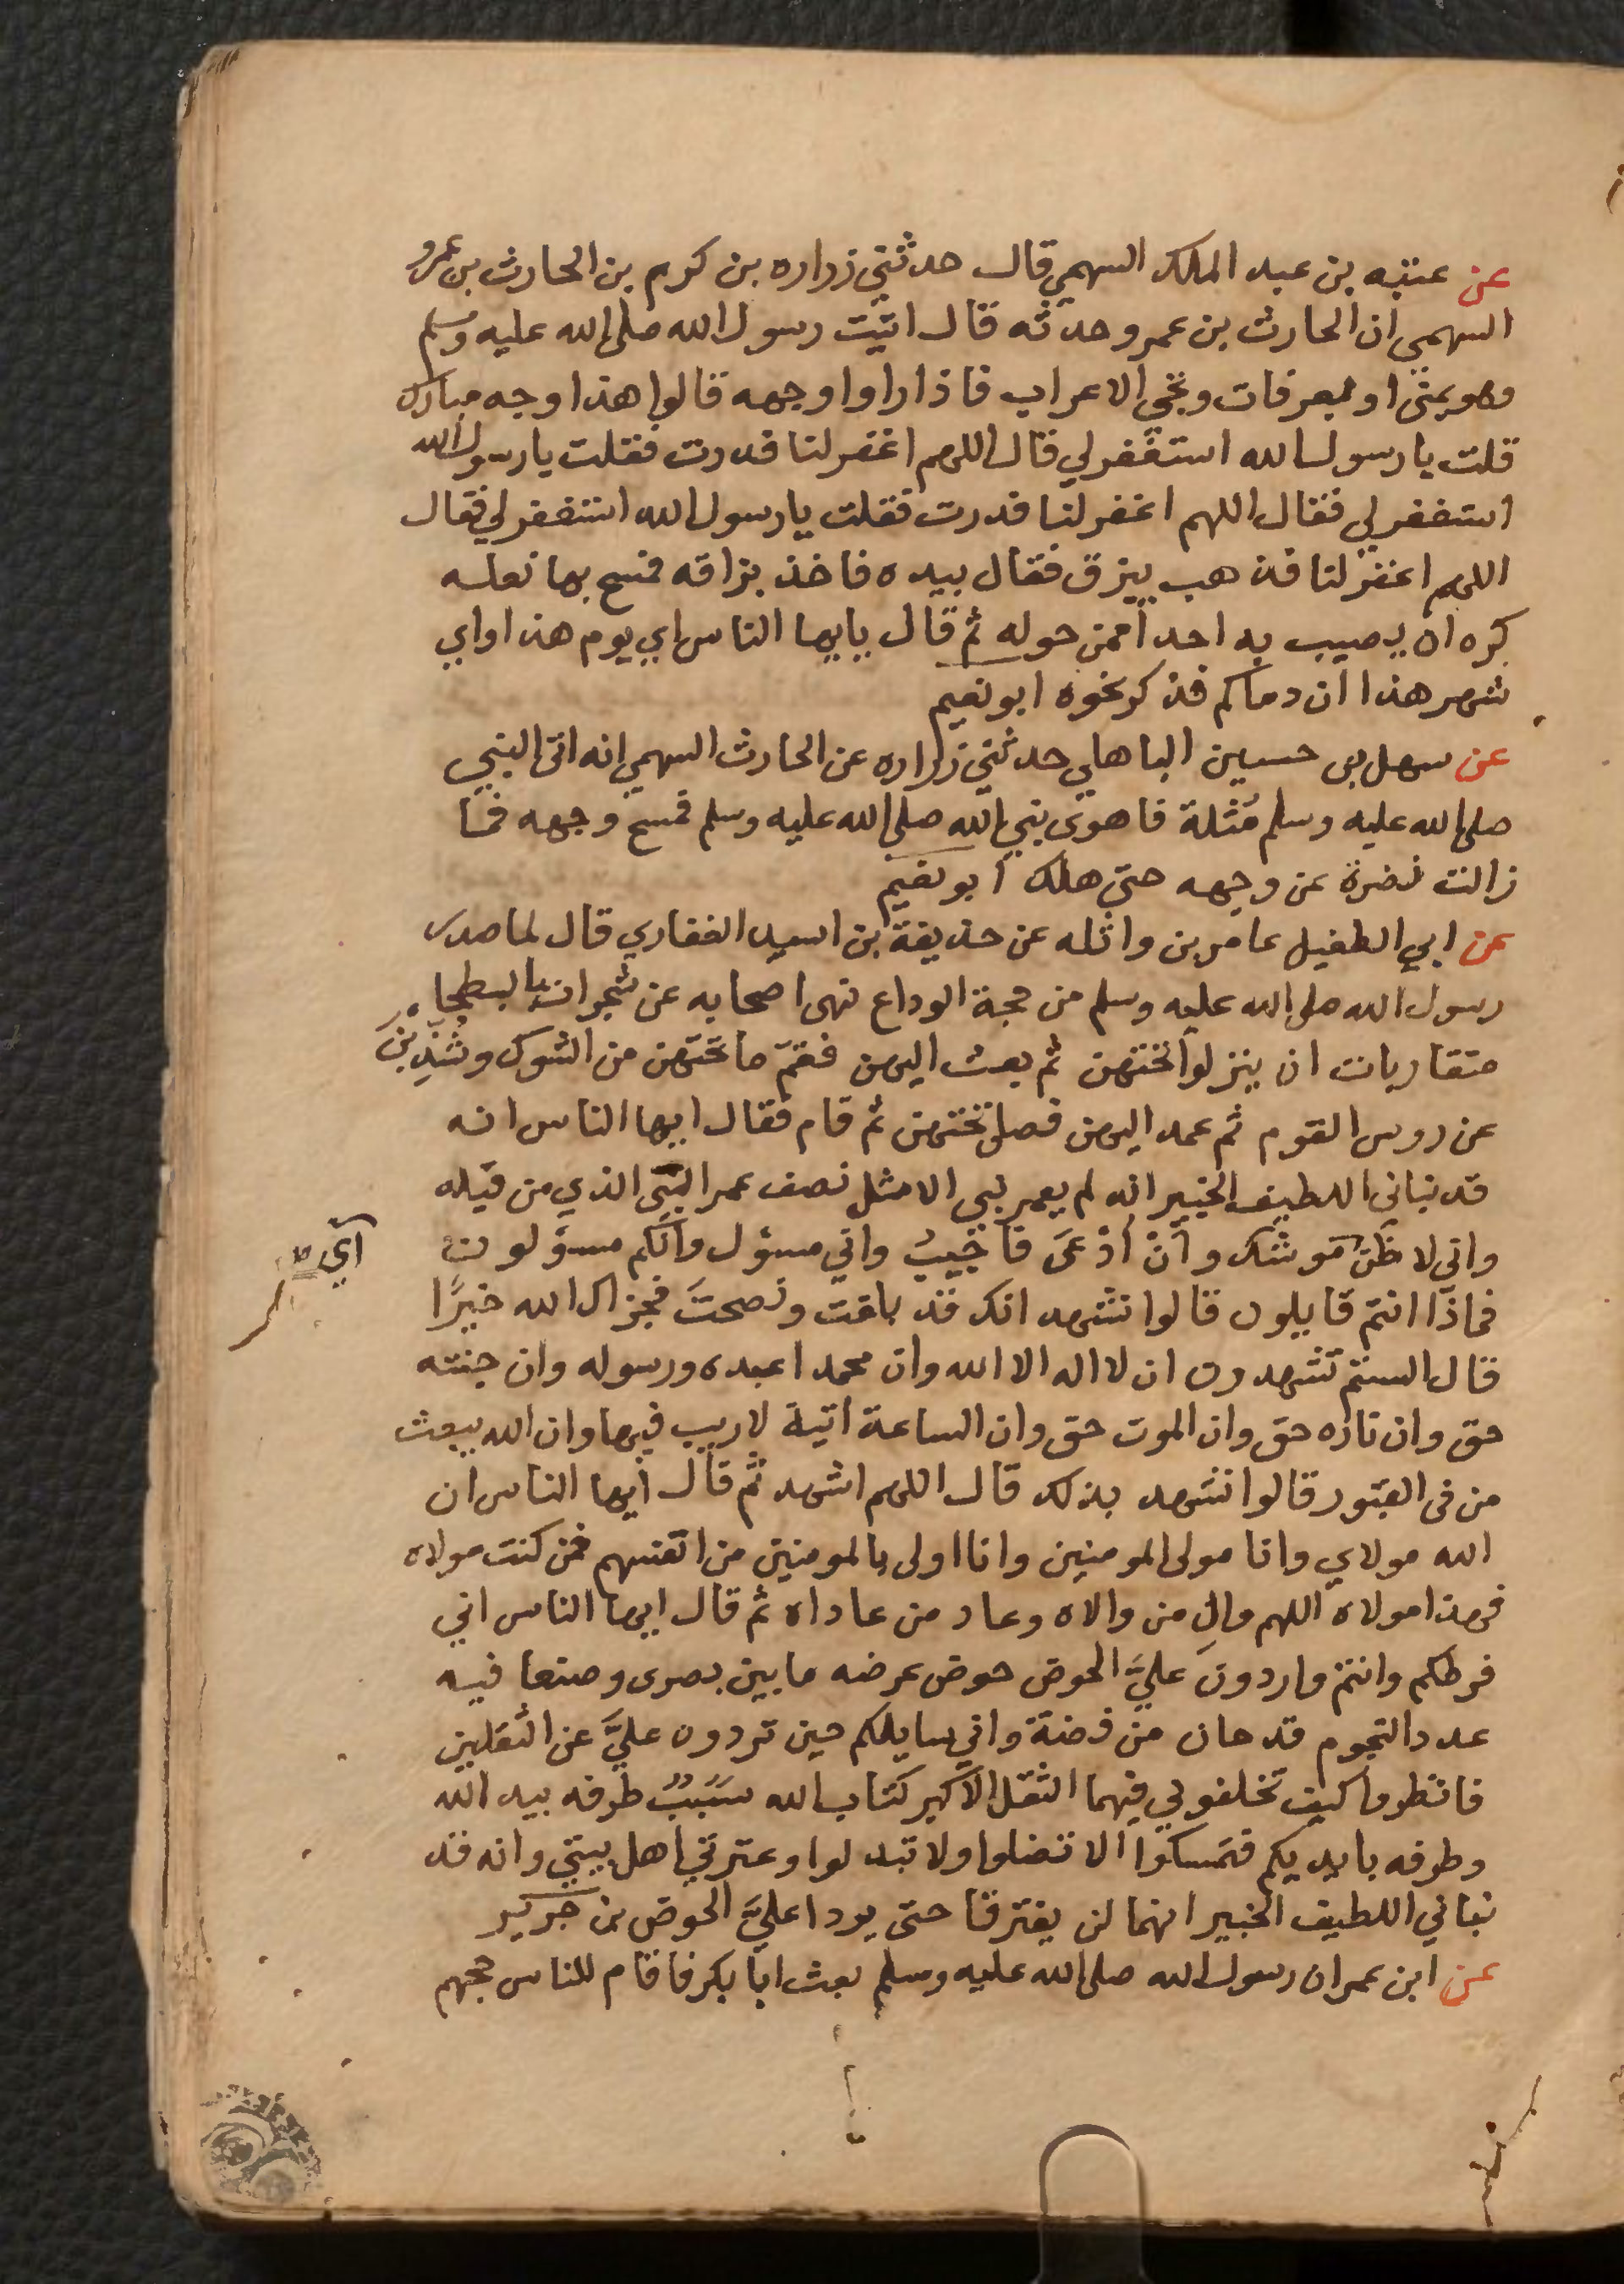 عن عتبه بن عبد الملك السهمي قال حدثني زراره بن كريم بن الحارث بن عمرو
السهمي ان الحارث بن عمرو حدثه قال اتيت رسول الله صلى الله عليه وسلم
وهو بمنى او بعرفات وتجي الاعراب فاذا راوا وجهه قالوا هذا وجه مبارك
قلت يا رسول الله استغفر لي قال اللهم اغفر لنا فدرت فقلت يا رسول الله
استغفر لي فقال اللهم اغفر لنا فدرت فقلت يا رسول الله استغفر لي فقال
اللهم اغفر لنا فذهب يبزق فقال بيده فاخذ بزاقه فمسح بها نعله
كره ان يصيب به احدا ممن حوله ثم قال يايها الناس اي يوم هذا واي
شهر هذا ان دماكم فذكر نحوه ابو نعيم
عن سهل بن حسين الباهلي حدثني زراره عن الحارث السهمي انه اتى النبي
صلى الله عليه وسلم مُثلة فاهوى نبي الله صلى الله عليه وسلم فمسح وجهه فما
زالت نضرة عن وجهه حتى هلك ابو نعيم
عن ابي الطفيل عامر بن واثله عن حذيفة بن اسيد الغفاري قال لما صدر
رسول الله صلى الله عليه وسلم من حجة الوداع نهى اصحابه عن شجرات بالبطحاء
متقاربات ان ينزلوا تحتهن ثم بعث اليهن فقمّ ما تحتهن من الشوك وشُذِّبْنَ
عن روس القوم ثم عمد اليهن فصلى تحتهن ثم قام فقال ايها الناس انه
قد نباني اللطيف الخبير انه لم يعمر نبي الا مثل نصف عمر النبي الذي من قبله
واني لاظن موشك وأنْ أُدْعَى فأجيبُ واني مسؤل وانكم مسؤلون
آي
فماذا انتم قايلون قالوا نشهد انك قد بلغت ونصحتَ فجزاك الله خيرًا
قال الستم تشهدون ان لا اله الا الله وان محمدا عبده ورسوله وان جنته
حق وان ناره حق وان الموت حق وان الساعة اتية لا ريب فيها وان الله يبعث
من فى القبور قالوا نشهد بذلك قال اللهم اشهد ثم قال ايها الناس ان
الله مولاي وانا مولى المومنين وانا اولى بالمومنين من انفسهم فمن كنت مولاه
فهذا مولاه اللهم والِ من والاه وعاد من عاداه ثم قال ايها الناس اني
فرطكم وانتم واردون عليَّ الحوض حوض عرضه ما بين بصرى وصنعا فيه
عدد النجوم قدحان من فضة واني سايلكم حين تردون عليَّ عن الثقلين
فانظروا كيف تخلفوني فيهما الثقل الاكبر كتاب الله سَبَبٌ طرفه بيد الله
وطرفه بايديكم فتمسكوا الا تضلوا ولا تبدلوا وعترتي اهل بيتي وانه قد
نباني اللطيف الخبير انهما لن يفترقا حتى يردا عليَّ الحوض بن جرير
عن ابن عمر ان رسول الله صلى الله عليه وسلم بعث ابا بكر فاقام للناس حجهم